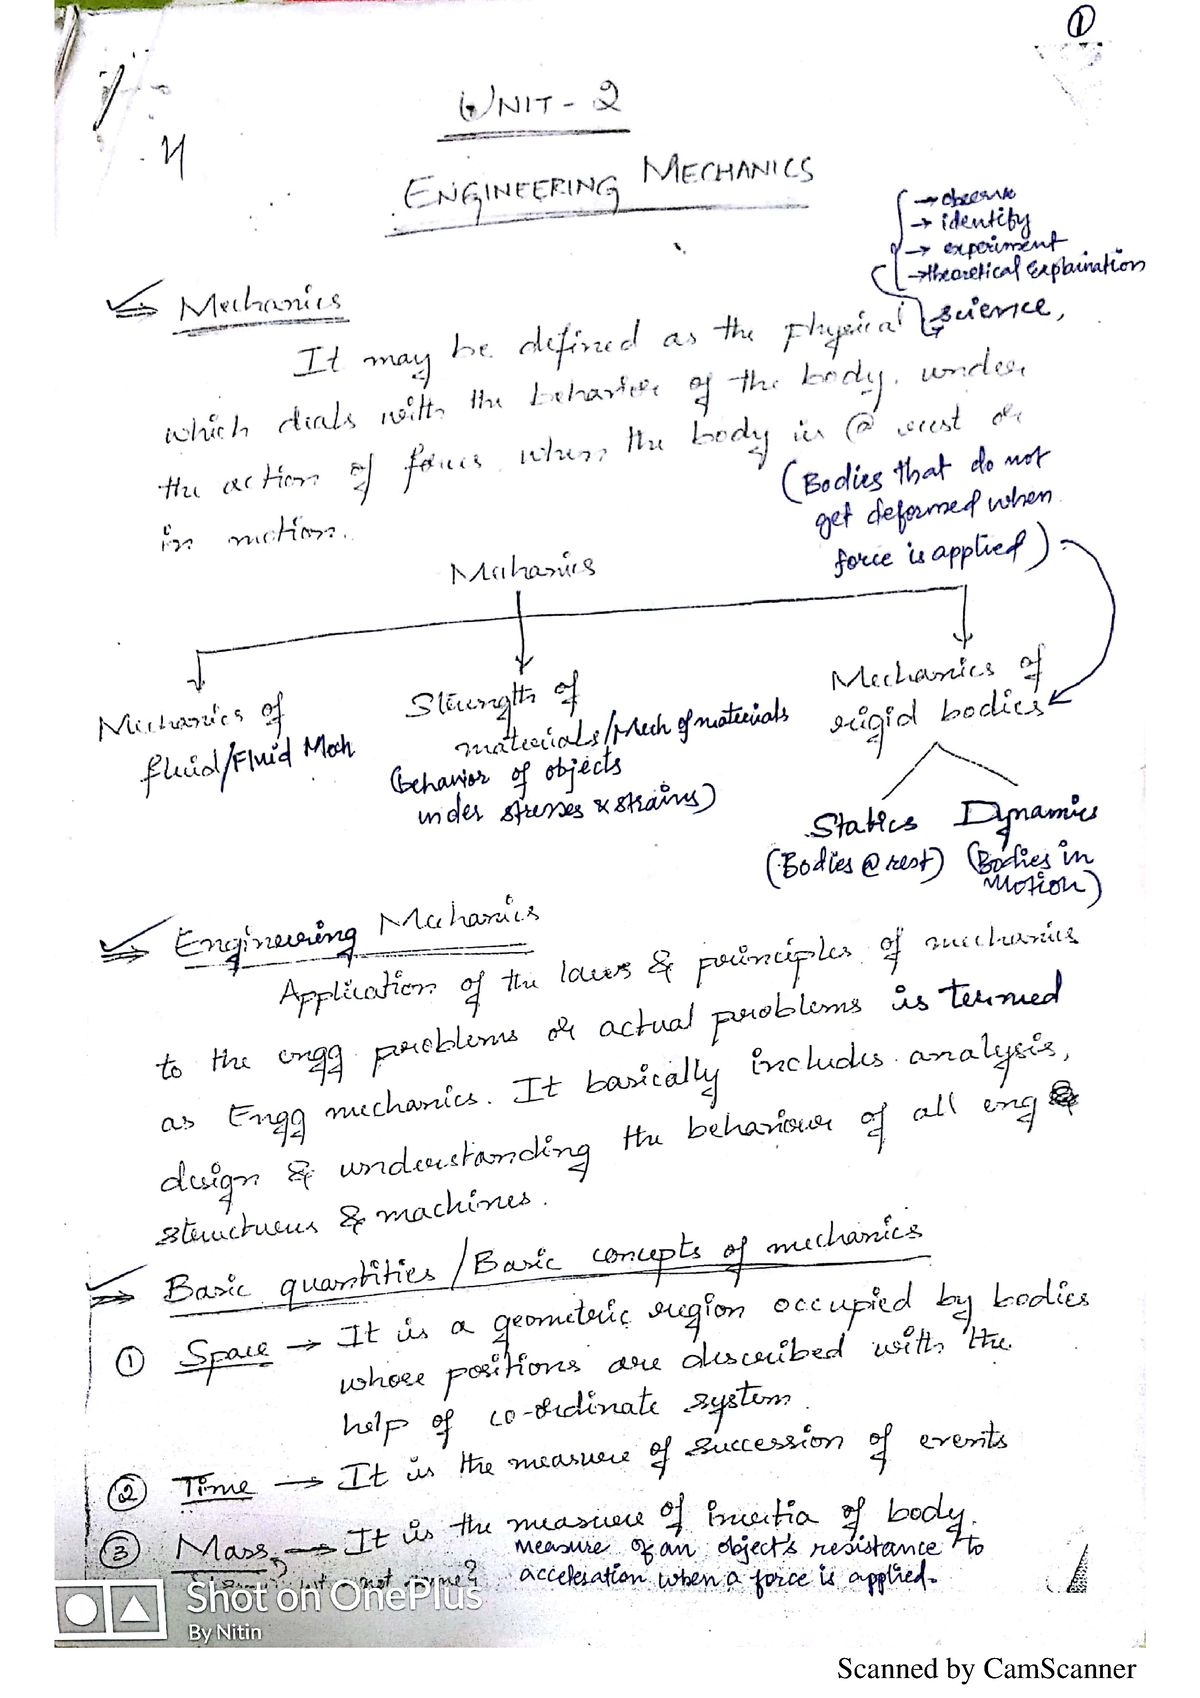 1
UNIT - 2
ENGINEERING MECHANICS
→ observe
→ identify
→ experiment
→ theoretical Explaination
⇒ Mechanics
It may be defined as the physical science,
which deals with the behavior of the body, under
the action of forces when the body is @ rest or
in motion.
(Bodies that do not
get deformed when
force is applied)
Mechanics
Mechanics of
fluid/Fluid Mech
Strength of
materials/Mech of materials
(behavior of objects
under stresses & strains)
Mechanics of
rigid bodies
Statics
(Bodies @ rest)
Dynamics
(Bodies in
Motion)
⇒ Engineering Mechanics
Application of the laws & principles of mechanics
to the engg problems or actual problems is termed
as Engg mechanics. It basically includes analysis,
design & understanding the behaviour of all eng
structures & machines.
⇒ Basic quantities / Basic concepts of mechanics
① Space → It is a geometric region occupied by bodies
whose positions are described with the
help of co-ordinate system.
② Time → It is the measure of succession of events
③ Mass → It is the measure of inertia of body.
measure of an object's resistance to
acceleration when a force is applied.
Shot on OnePlus
By Nitin
Scanned by CamScanner